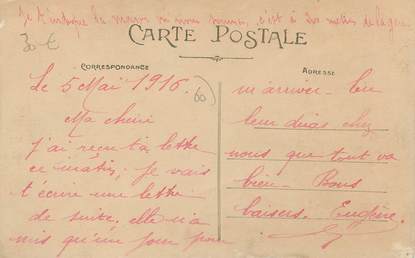 Je t'indique la maison où nous sommes, c'est à 200 mètres de la gare
30 €
CARTE POSTALE
CORRESPONDANCE
ADRESSE
Le 5 Mai 1916.
60
Ma chérie
J'ai reçu ta lettre
ce matin, je vais
t'écrire une lettre
de suite. elle n'a
mis qu'un jour pour
m'arriver-
leur diras chez
nous que tout va
bien - Bons
baisers.